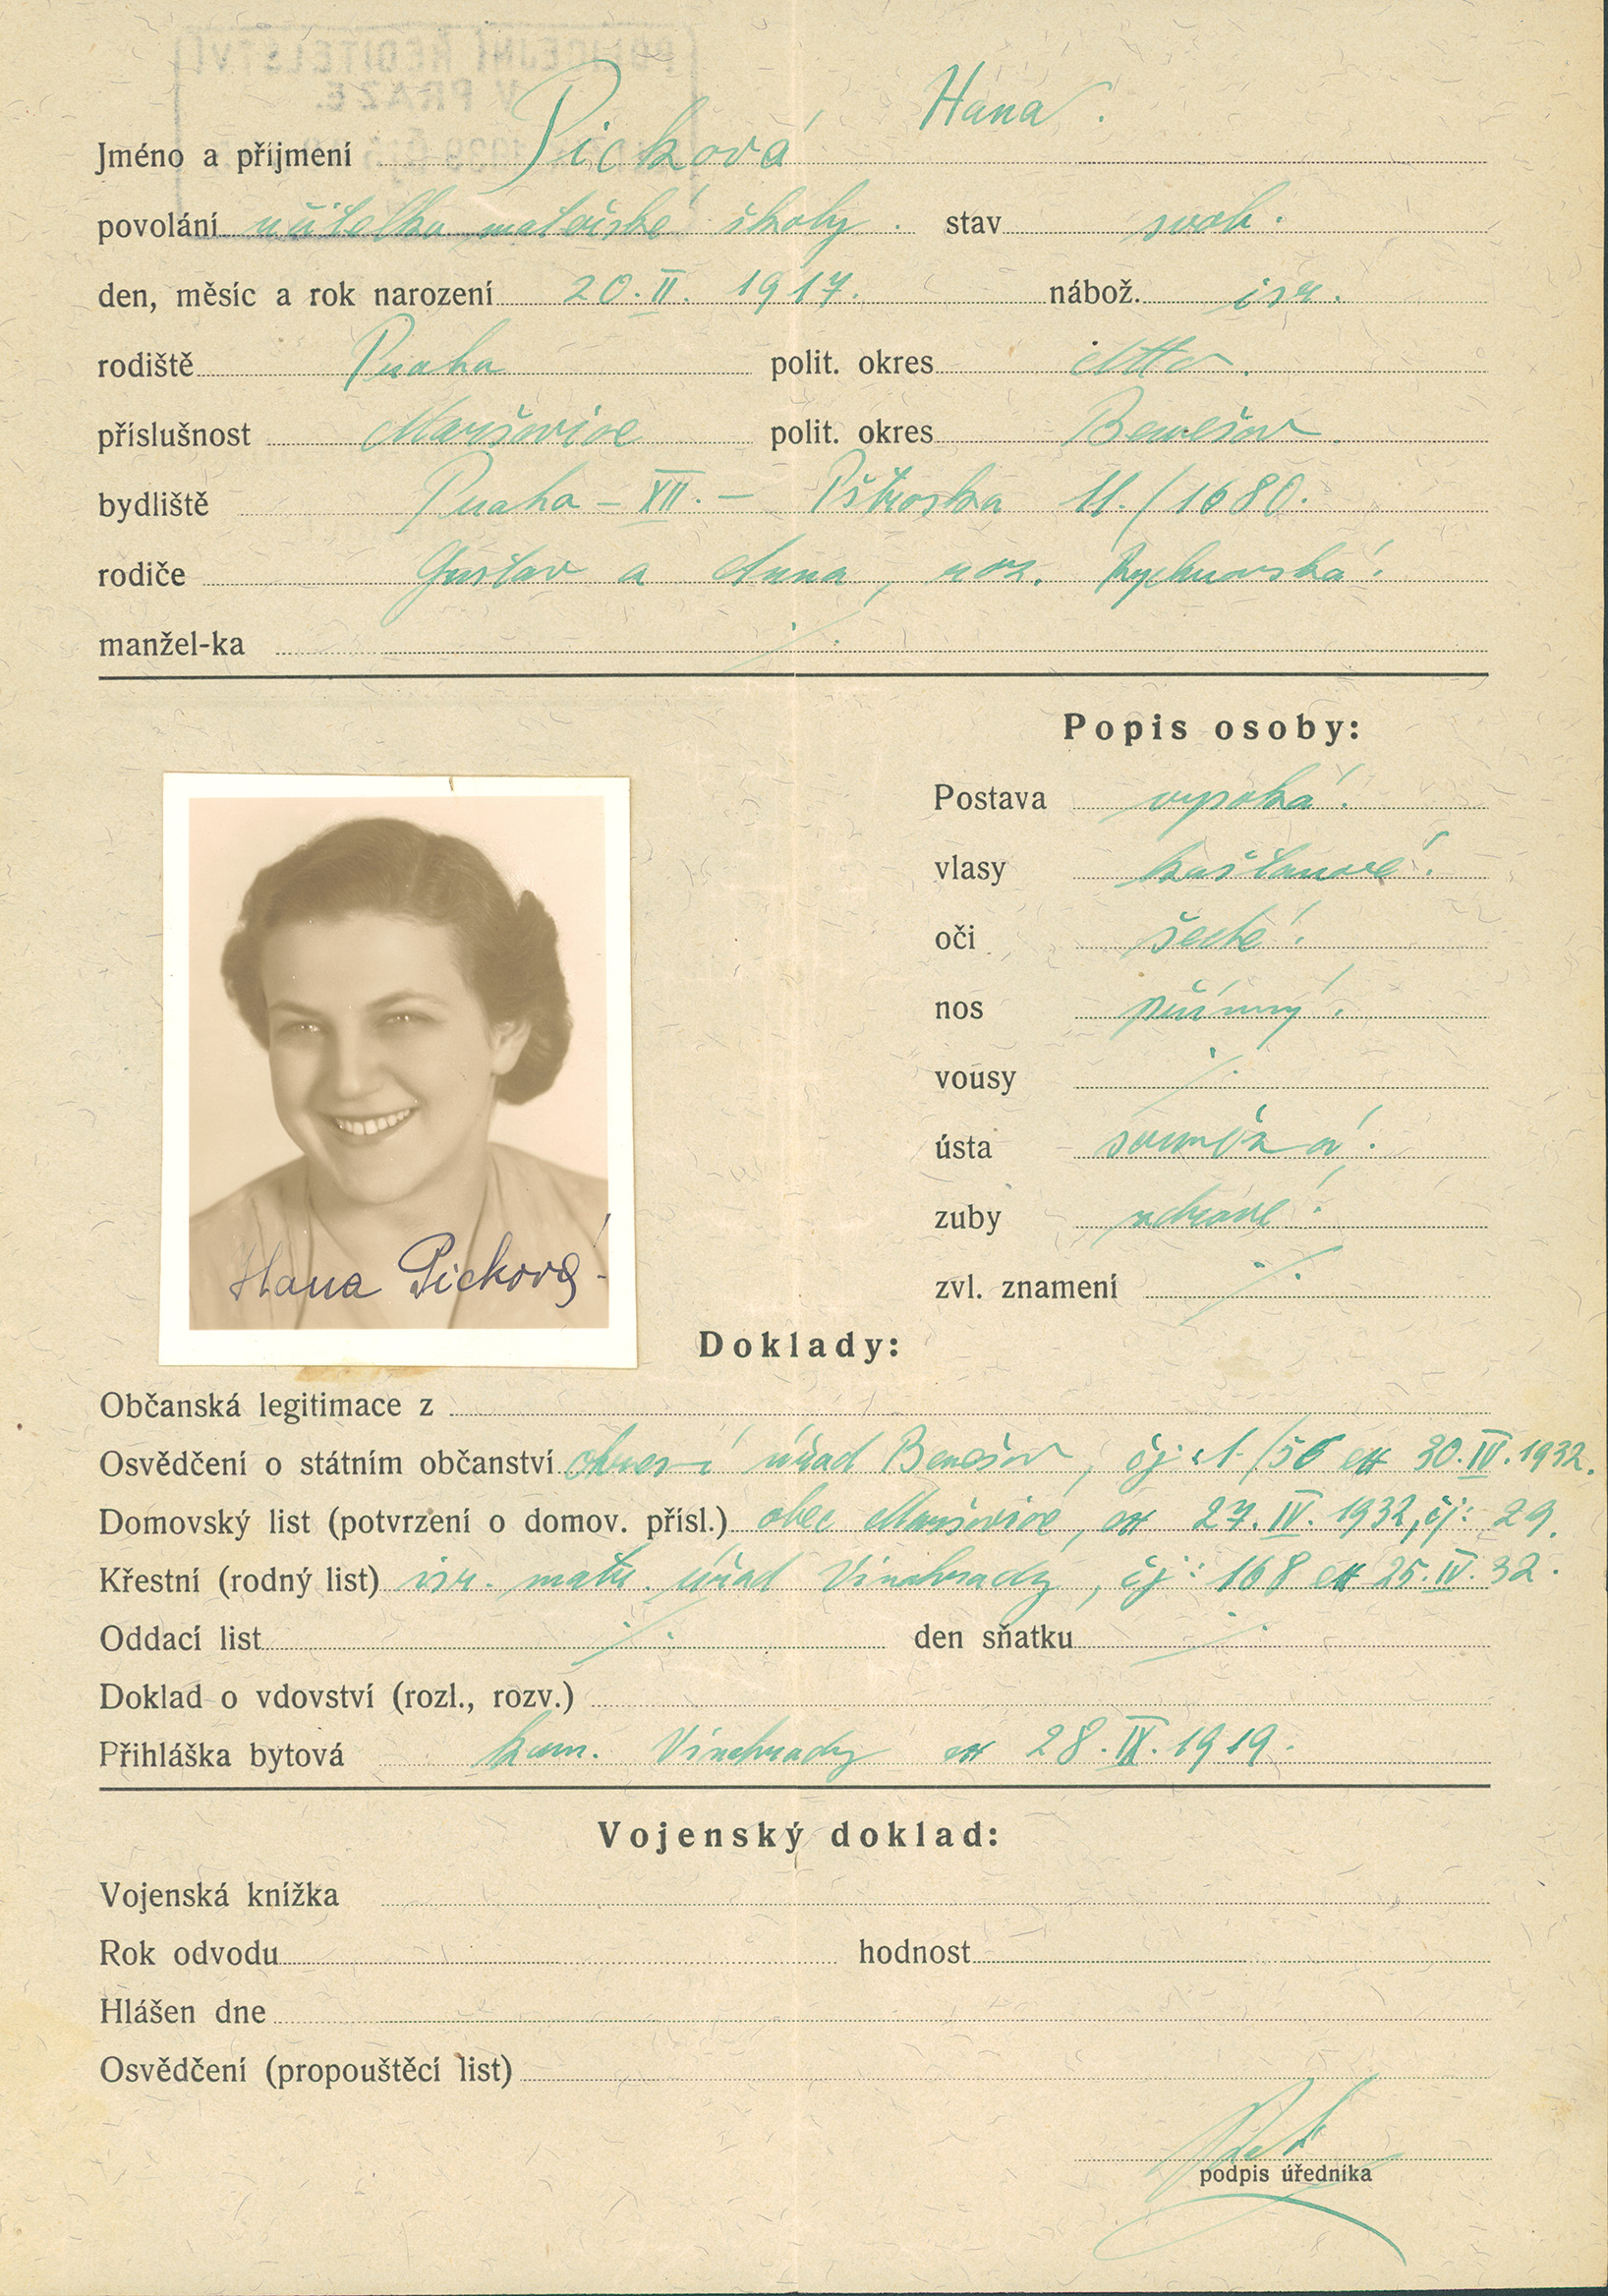 POLICEJNÍ ŘEDITELSTVÍ
V PRAZE.
Hana.
Jméno a příjmení Picková
povolání učitelka mateřské školy. stav svob.
den, měsíc a rok narození 20. II. 1917. nábož. isr.
rodiště Praha polit. okres dtto.
příslušnost Maršovice polit. okres Benešov.
bydliště Praha - XII. - Pštroska 11./1680.
rodiče Gustav a Anna, roz. Rychnovská.
manžel-ka ./.
Popis osoby:
Postava vysoká.
vlasy kaštanové.
oči šedé.
nos přímný.
vousy ./.
ústa souměrná.
zuby zdravé.
zvl. znamení ./.
Hana Picková
Doklady:
Občanská legitimace z
Osvědčení o státním občanství okresní úřad Benešov, čj: 1/56 ex 30. IV. 1932.
Domovský list (potvrzení o domov. přísl.) obec Maršovice, ex 27. IV. 1932, čj: 29.
Křestní (rodný list) isr. matr. úřad Vinohrady, čj: 168 ex 25. IV. 32.
Oddací list ./. den sňatku ./.
Doklad o vdovství (rozl., rozv.)
Přihláška bytová kom. Vinohrady ex 28. IX. 1919.
Vojenský doklad:
Vojenská knížka
Rok odvodu hodnost
Hlášen dne
Osvědčení (propouštěcí list)
podpis úředníka